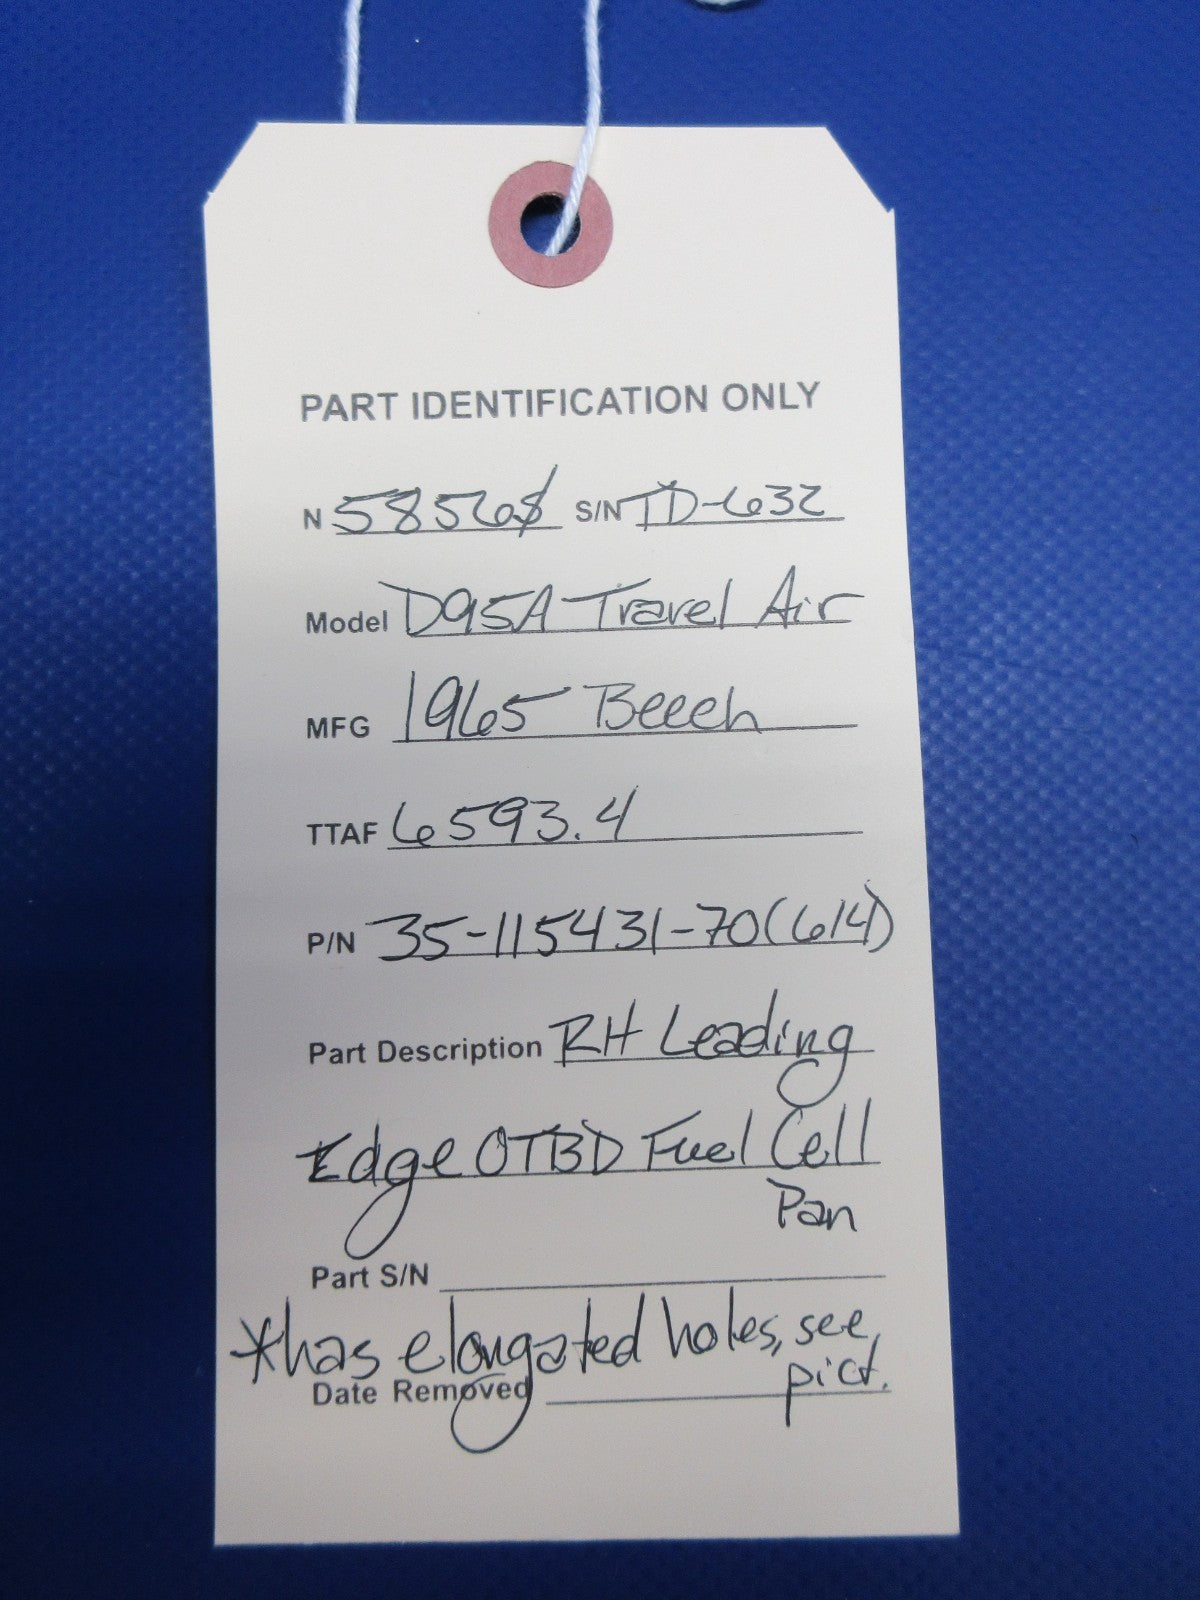 PART IDENTIFICATION ONLY
N 5856S S/N TD-632
Model D95A Travel Air
MFG 1965 Beech
TTAF 6593.4
P/N 35-115431-70(614)
Part Description RH Leading
Edge OTBD Fuel Cell
Pan
Part S/N
*has elongated holes, see
pict.
Date Removed